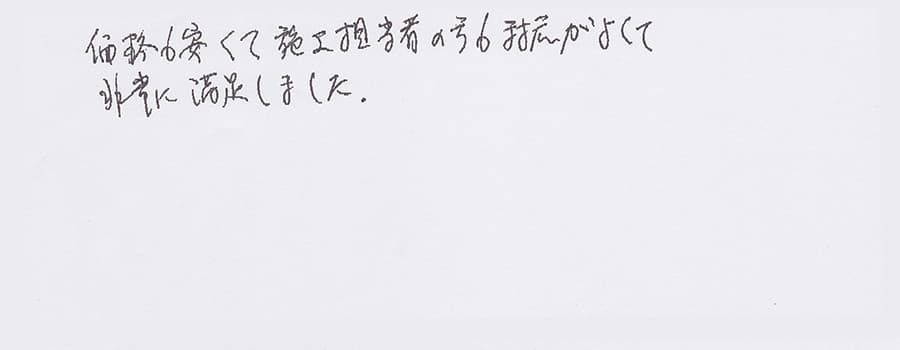 価格も安くて施工担当者の方も対応がよくて
非常に満足しました.